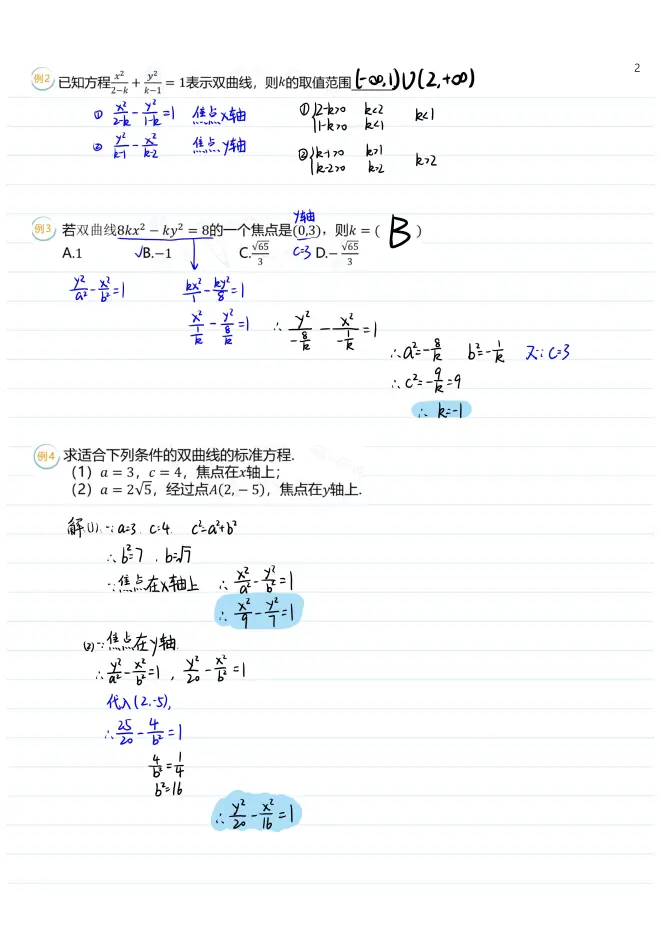 2
例2 已知方程x²/(2−k) + y²/(k−1) = 1表示双曲线，则k的取值范围 (-∞,1)∪(2,+∞)
① x²/(2-k) - y²/(1-k) = 1 焦点x轴 ① {2-k>0 k<2 k<1
1-k>0 k<1
② y²/(k-1) - x²/(k-2) 焦点y轴 ② {k-1>0 k>1 k>2
k-2>0 k>2
y轴
例3 若双曲线8kx² − ky² = 8的一个焦点是(0,3)，则k = ( B )
A.1 √B.−1 C.√65/3 c=3 D.−√65/3
y²/a² - x²/b² = 1 kx²/1 - ky²/8 = 1
x²/(1/k) - y²/(8/k) = 1 ∴ y²/(-8/k) - x²/(-1/k) = 1
∴a²=-8/k b²=-1/k 又∵c=3
∴c²=-9/k=9
∴ k=-1
例4 求适合下列条件的双曲线的标准方程.
（1）a = 3，c = 4，焦点在x轴上；
（2）a = 2√5，经过点A(2, − 5)，焦点在y轴上.
解(1).∵a=3. c=4. c²=a²+b²
∴b²=7 , b=√7
∵焦点在x轴上 ∴ x²/a² - y²/b² = 1
∴ x²/9 - y²/7 = 1
(2)∵焦点在y轴.
∴ y²/a² - x²/b² = 1 , y²/20 - x²/b² = 1
代入(2,-5),
∴ 25/20 - 4/b² = 1
4/b² = 1/4
b²=16
∴ y²/20 - x²/16 = 1